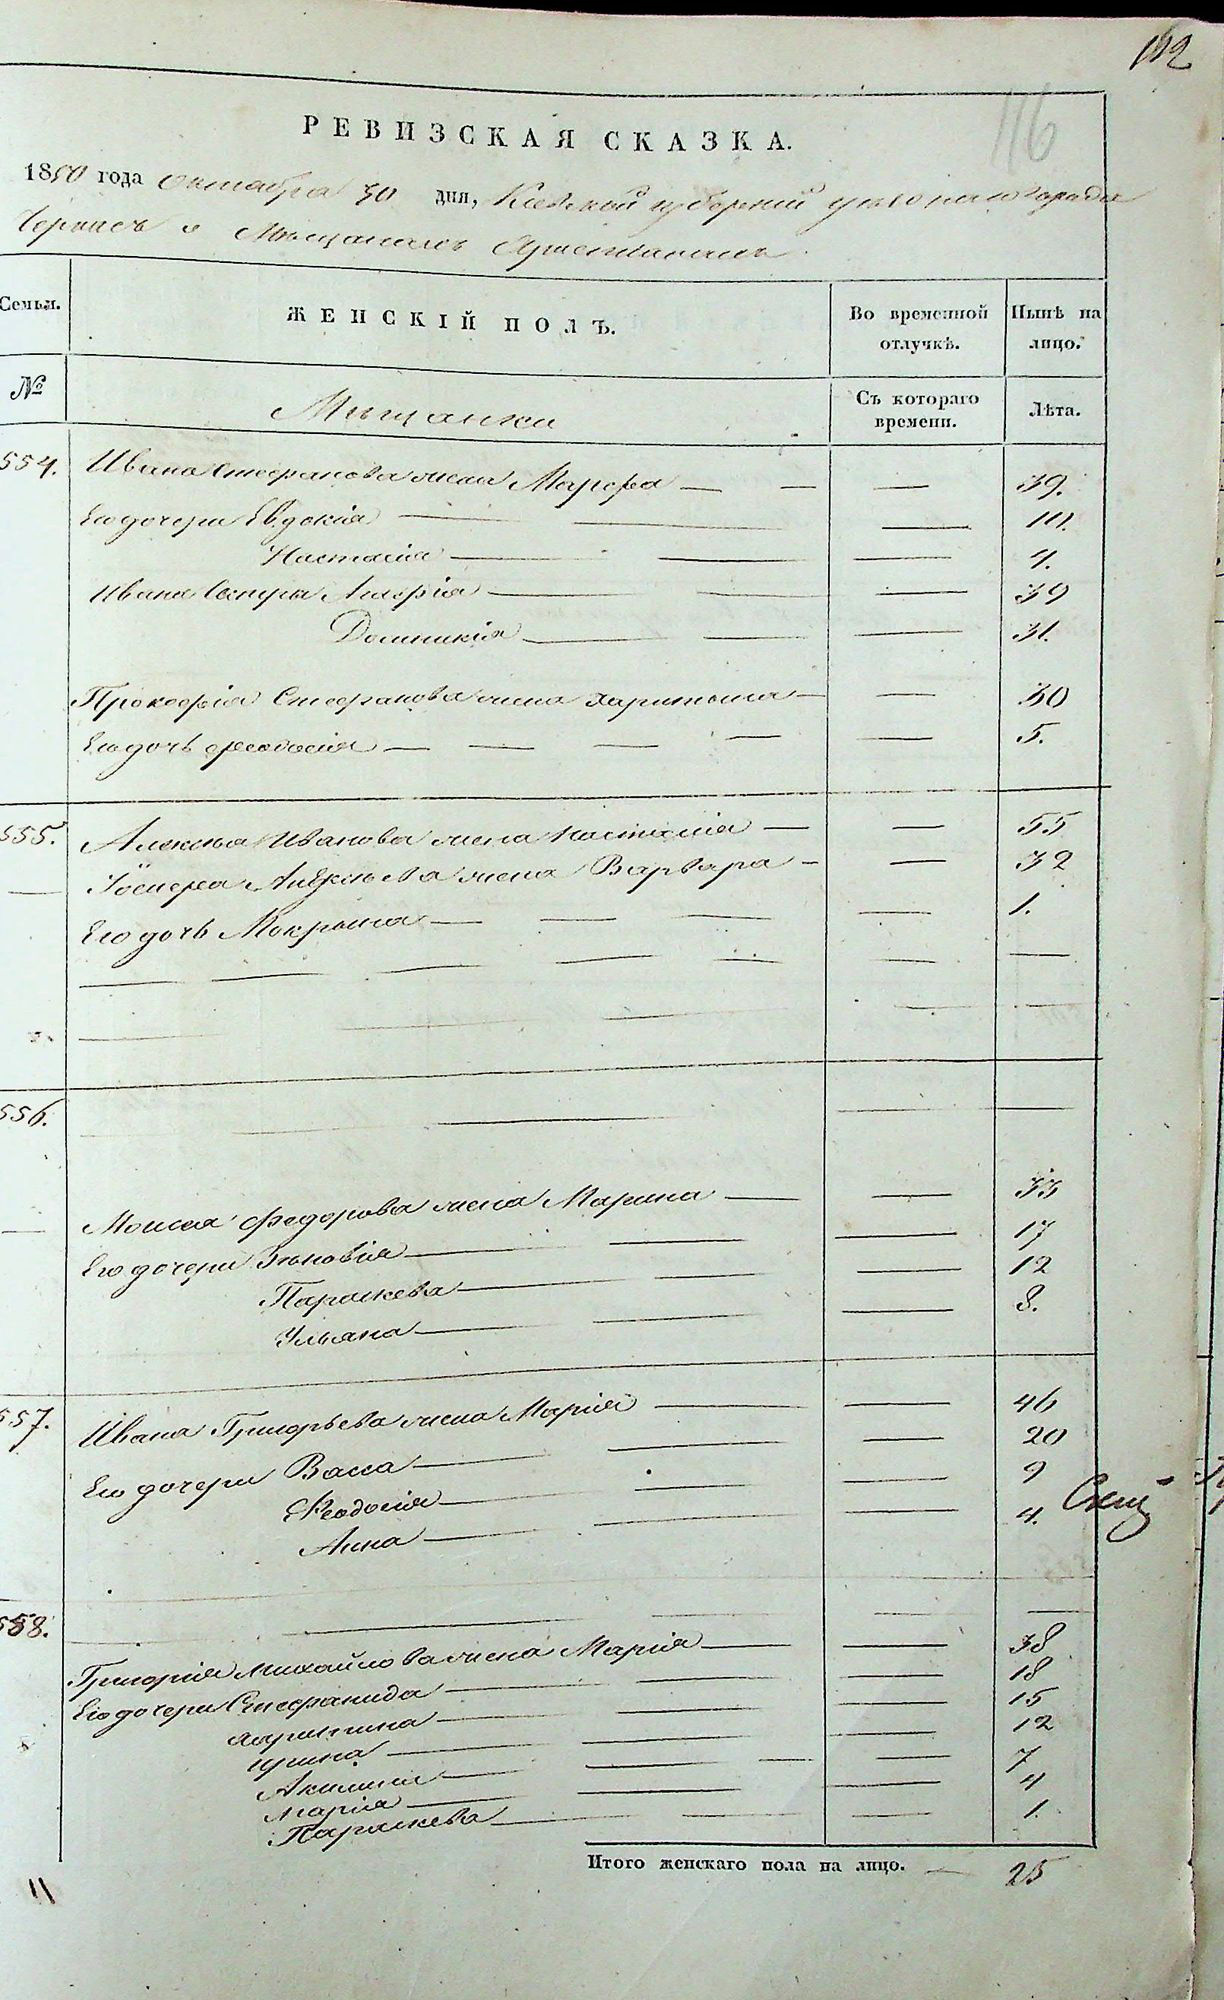 112
116
РЕВИЗСКАЯ СКАЗКА.
1850 года Октября 30 дня, Киевской губерніи уезднаго города
Черкасъ о Мещанахъ Християнахъ.
Семьи. ЖЕНСКІЙ ПОЛЪ. Во временной отлучкѣ. Нынѣ на лицо.
№ Мещанки Съ котораго времени. Лѣта.
554. Ивана Стефанова жена Марфа — — — 39.
Его дочери Евдокія — — — 10.
Настасія — — — 4.
Ивана Сестры Марфія — — — 39
Домникія — — — 31.
Прокофія Стефанова жена Харитина — — 30
Его дочь Феодосія — — — — — 5.
555. Алексѣя Иванова жена Настасія — — 55
Іосифа Алексѣева жена Варвара — — 32
Его дочь Мокрына — — — — 1.
556.
Моисея Федорова жена Марина — — 33
Его дочери Зѣновія — — — 17
Параскева — — — 12
Ульяна — — — 8.
557. Ивана Григорьева жена Марія — — — 46
Его дочери Васса — — — 20
Феодосія — — — 9
Анна — — — 4.
558.
Григорія Михайлова жена Марія — — 38
Его дочери Стефанида — — — 18
Харитина — — — 15
Ирина — — — 12
Акилина — — — 7
Марія — — — 4
Параскева — — — 1.
Итого женскаго пола на лицо. — 25